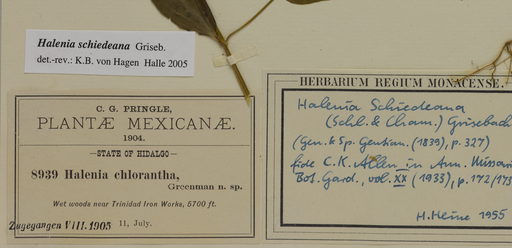 Halenia schiedeana Griseb.
det.-rev.: K.B. von Hagen Halle 2005
C. G. PRINGLE,
PLANTÆ MEXICANÆ.
1904.
STATE OF HIDALGO
8939 Halenia chlorantha,
Greenman n. sp.
Wet woods near Trinidad Iron Works, 5700 ft.
Zugegangen VIII.1905 11, July.
HERBARIUM REGIUM MONACENSE.
Halenia Schiedeana
(Schl. & Cham.) Grisebach
(Gen. & Sp. Gentian. (1839), p. 327)
fide C. K. Allen in Ann. Missouri
Bot. Gard., vol. XX (1933), p. 172/173
H. Heine 1955